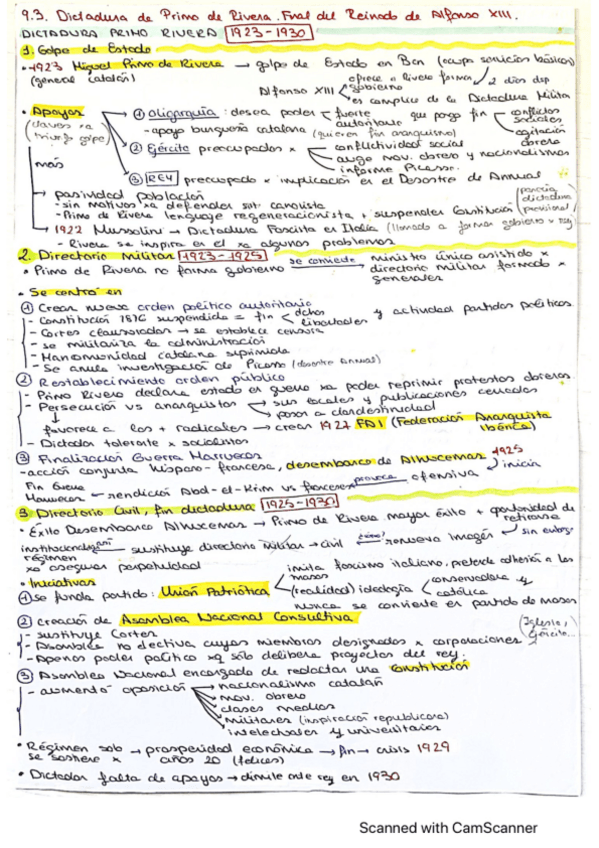 9.3. Dictadura de Primo de Rivera. Final del Reinado de Alfonso XIII.
DICTADURA PRIMO RIVERA 1923-1930
1. Golpe de Estado
• 1923 Miguel Primo de Rivera → golpe de Estado en Bcn (ocupa servicios básicos)
(general catalán)
Alfonso XIII
ofrece a Rivera formar gobierno 2 días dsp
es cómplice de la Dictadura Militar
• Apoyos
(claves xa triunfo golpe)
① Oligarquía: desea poder fuerte autoritario que ponga fin conflictos sociales
agitación obrera
- apoyo burguesía catalana (quieren fin anarquismo)
② Ejército preocupados x
conflictividad social
auge mov. obrero y nacionalismos
informe Picasso.
③ REY preocupado x implicación en el Desastre de Annual
más
→ pasividad población
- sin motivos xa defender sist. canovista
- Primo de Rivera lenguaje regeneracionista + suspender Constitución (parecía dictadura provisional)
→ 1922 Mussolini → Dictadura Fascista en Italia (llamado a formar gobierno x rey)
- Rivera se inspira en él xa algunos problemas
2. Directorio Militar 1923-1925
• Primo de Rivera no forma gobierno se convierte ministro único asistido x
directorio militar formado x
generales
• Se centró en
① Crear nuevo orden político autoritario
- Constitución 1876 suspendida = fin dchos libertades y actividad partidos políticos
- Cortes clausuradas → se establece censura
- se militariza la administración
- Mancomunidad catalana suprimida
- Se anula investigación de Picasso (desastre Annual)
② Restablecimiento orden público
- Primo Rivera declara estado de guerra xa poder reprimir protestas obreras
- Persecución vs anarquistas → sus locales y publicaciones cerradas
pasar a clandestinidad
favorece a los + radicales → crean 1927 FAI (Federación Anarquista Ibérica)
- Dictador tolerante x socialistas
③ Finalización Guerra Marruecos
- acción conjunta hispano-francesa, desembarco de Alhucemas 1925
inician
Fin Guerra Marruecos ← rendición Abd-el-Krim vs franceses provoca ofensiva
3. Directorio Civil, fin dictadura 1925-1930
• Éxito Desembarco Alhucemas → Primo de Rivera mayor éxito + oportunidad de retirarse
sin embargo
institucionalizar régimen xa asegurar perpetuidad sustituye directorio militar → civil renueva imagen
• Iniciativas
① Se funda partido: Unión Patriótica
imita fascismo italiano, pretende adhesión a las masas
(realidad) ideología conservadora y católica
nunca se convierte en partido de masas
② creación de Asamblea Nacional Consultiva
- sustituye Cortes
- Asamblea no electiva cuyos miembros designados x corporaciones (Iglesia, Ejército...
- Apenas poder político xq sólo delibera proyectos del rey.
③ Asamblea Nacional encargada de redactar una Constitución
- aumentó oposición
nacionalismo catalán
mov. obrero
clases medias
militares (inspiración republicana)
intelectuales y universitarios
• Régimen solo se sostiene x → prosperidad económica años 20 (felices) → fin → crisis 1929
• Dictador falta de apoyos → dimite ante rey en 1930
Scanned with CamScanner